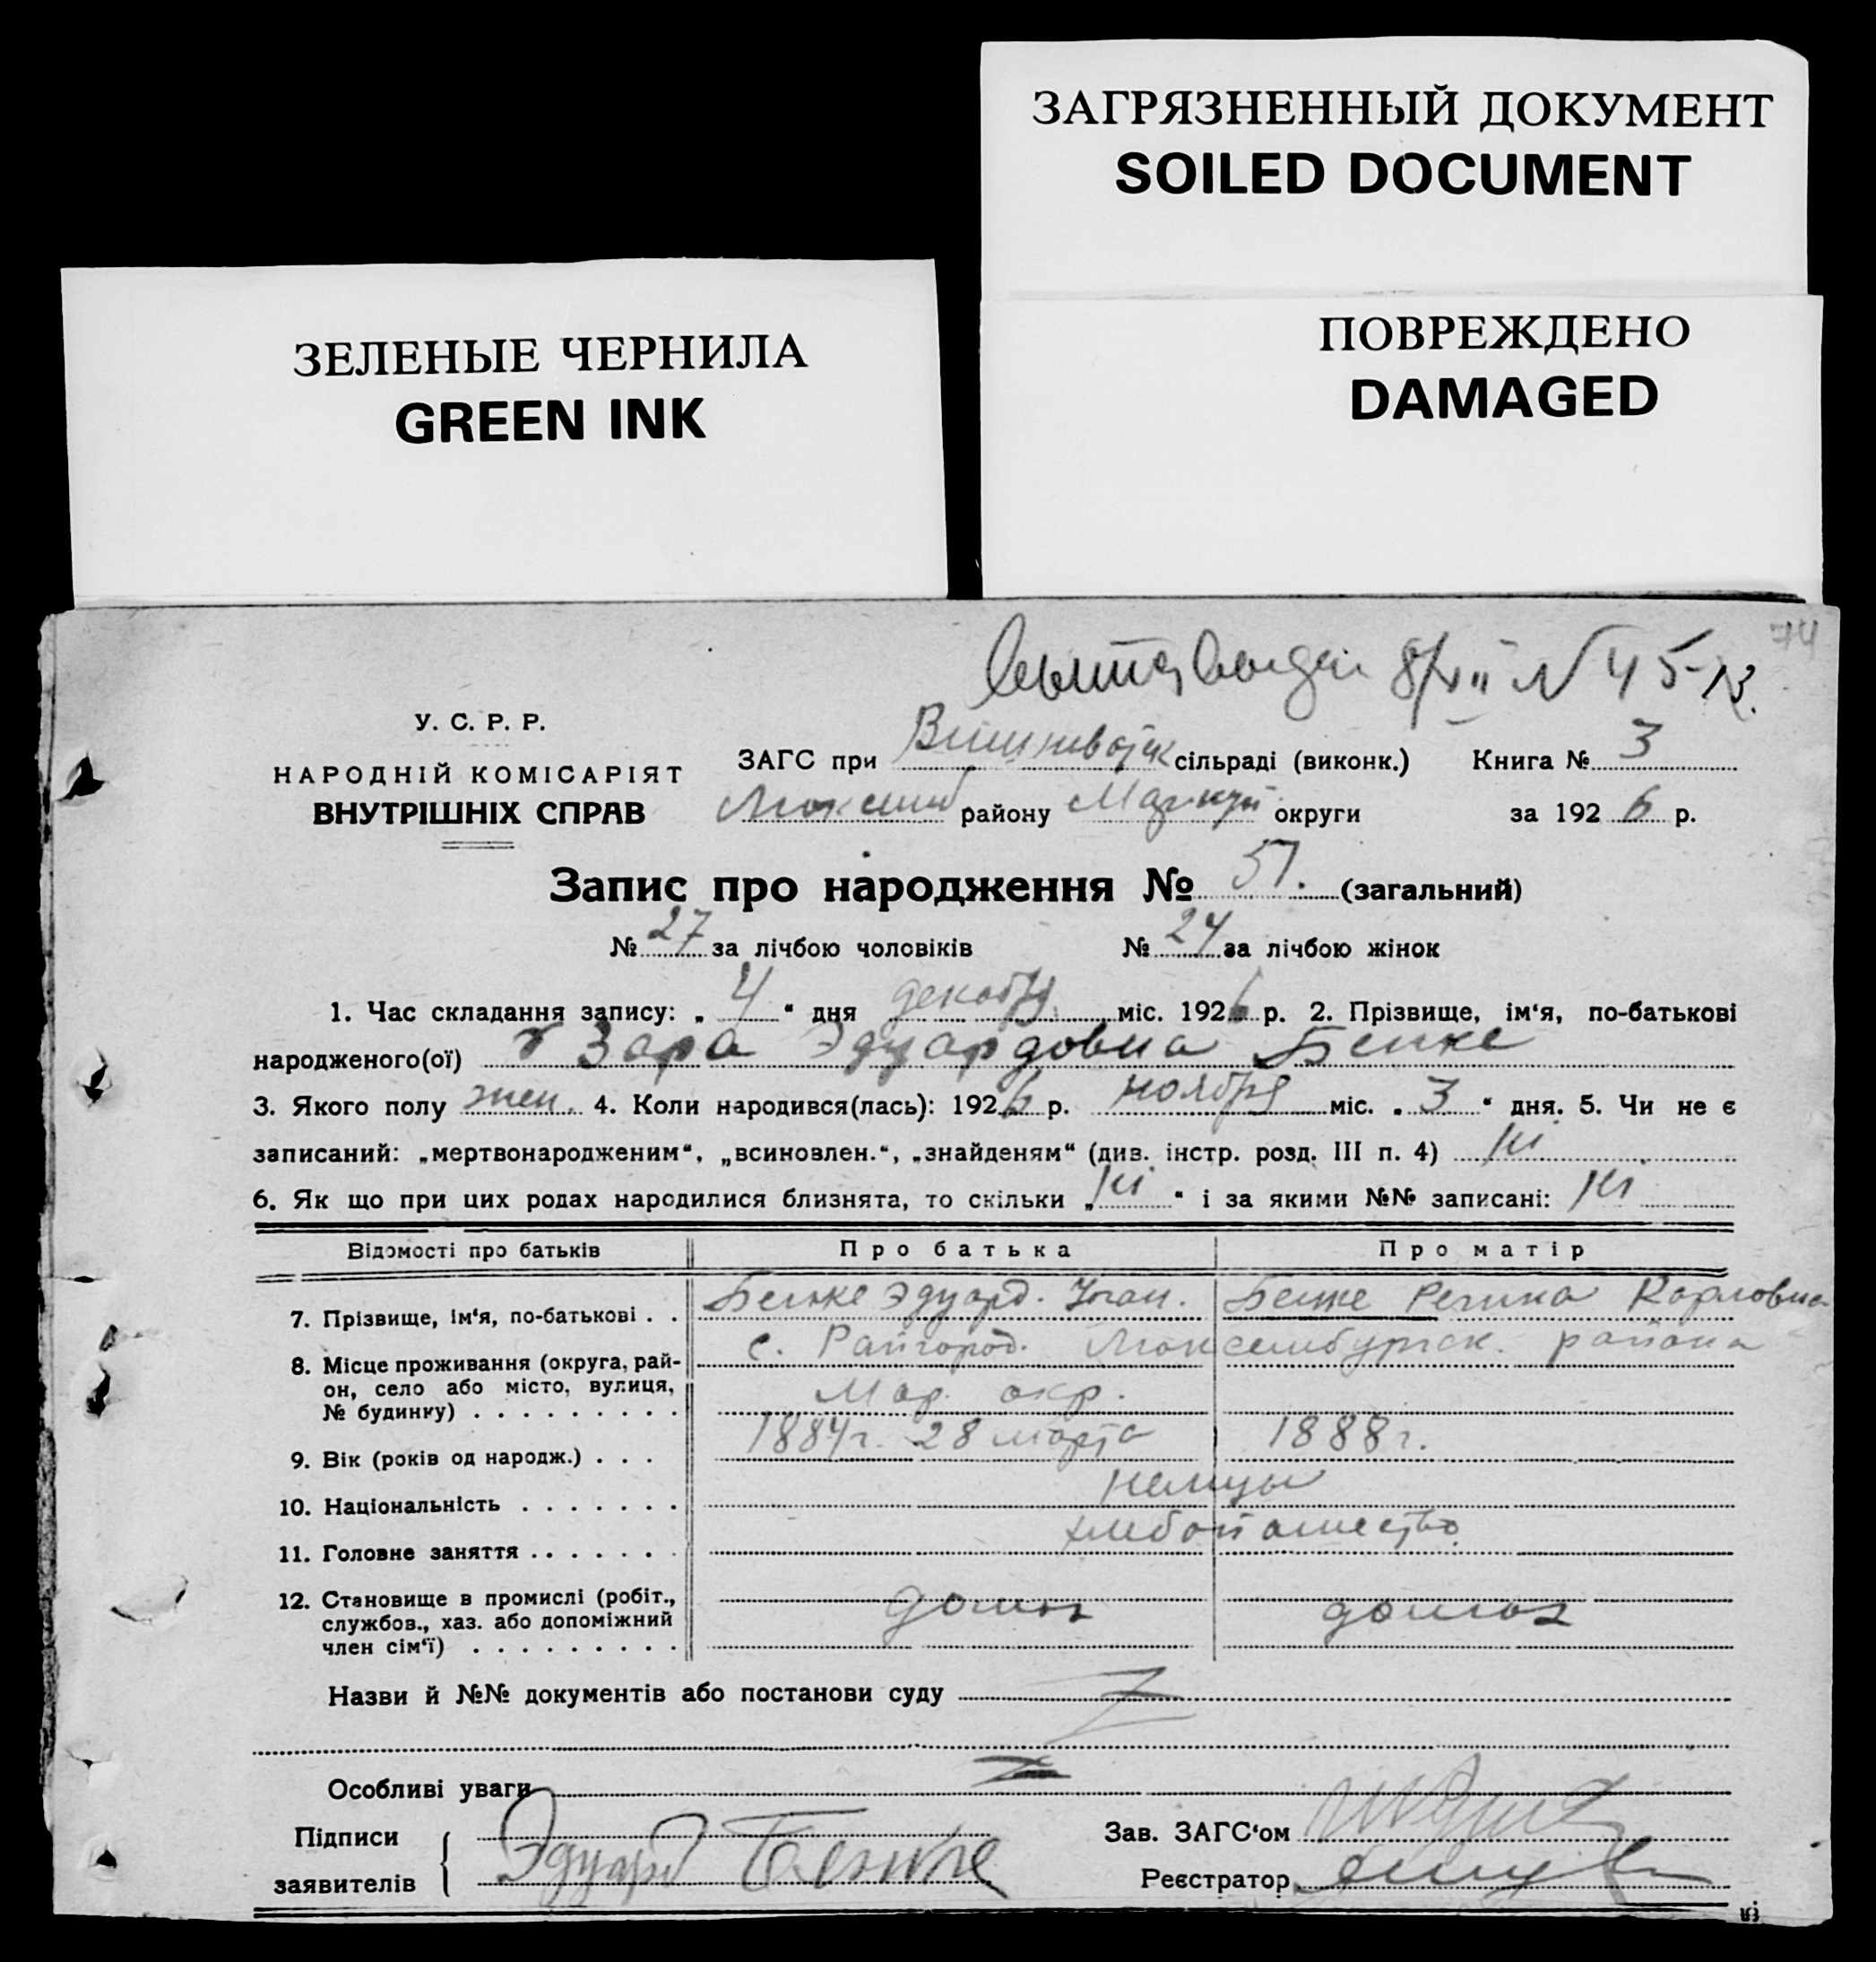 ЗАГРЯЗНЕННЫЙ ДОКУМЕНТ
SOILED DOCUMENT
ЗЕЛЕНЫЕ ЧЕРНИЛА
GREEN INK
ПОВРЕЖДЕНО
DAMAGED
74
8/XII N 45
У. С. Р. Р.
НАРОДНІЙ КОМІСАРІЯТ
ВНУТРІШНІХ СПРАВ
ЗАГС при сільраді (виконк.) Книга № 3
району округи за 1926 р.
Запис про народження № 51. (загальний)
№ 27 за лічбою чоловіків № 24 за лічбою жінок
1. Час складання запису: „ 4 “ дня декабря міс. 1926 р. 2. Прізвище, ім'я, по-батькові
народженого(ої) Зара Эдуардовна Бенке
3. Якого полу жен. 4. Коли народився(лась): 1926 р. ноября міс. „ 3 “ дня. 5. Чи не є
записаний: „мертвонародженим“, „всиновлен.“, „знайденям“ (див. інстр. розд. III п. 4) Ні
6. Як що при цих родах народилися близнята, то скільки „ Ні “ і за якими №№ записані: Ні
Відомості про батьків Про батька Про матір
7. Прізвище, ім'я, по-батькові . . Бенке Эдуард. Иоган. Бенке Регина Карловна
8. Місце проживання (округа, район, село або місто, вулиця, № будинку) . . . . . . . . . с. Райгород. Люксембургск. района
Мар. окр.
9. Вік (років од народж.) . . . 1884 г. 28 марта 1888 г.
10. Національність . . . . . . . немцы
11. Головне заняття . . . . . . . хлебопашество
12. Становище в промислі (робіт., службов., хаз. або допоміжний член сім'ї) . . . . . . . . .
Назви й №№ документів або постанови суду
Особливі уваги
Підписи
заявителів
Эдуард Бенке
Зав. ЗАГС'ом
Реєстратор